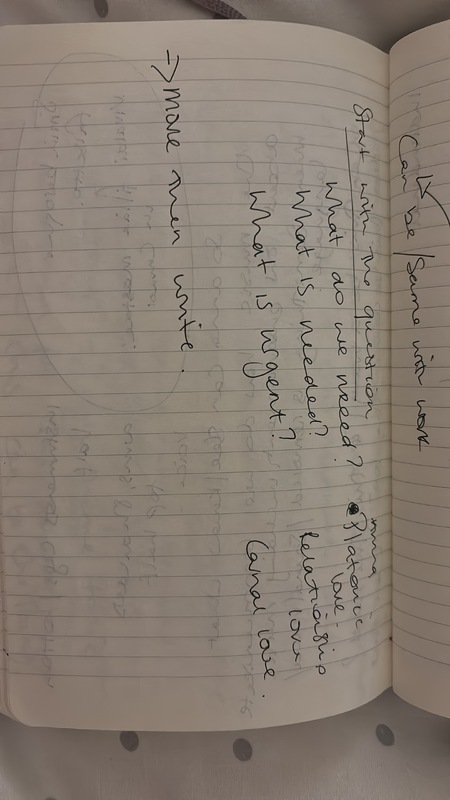 Can be / Same with work
Start with the question
What do we need?
What is needed?
What is urgent?
Platonic
love.
Relationship
love
Carnal love.
→ Move then write.